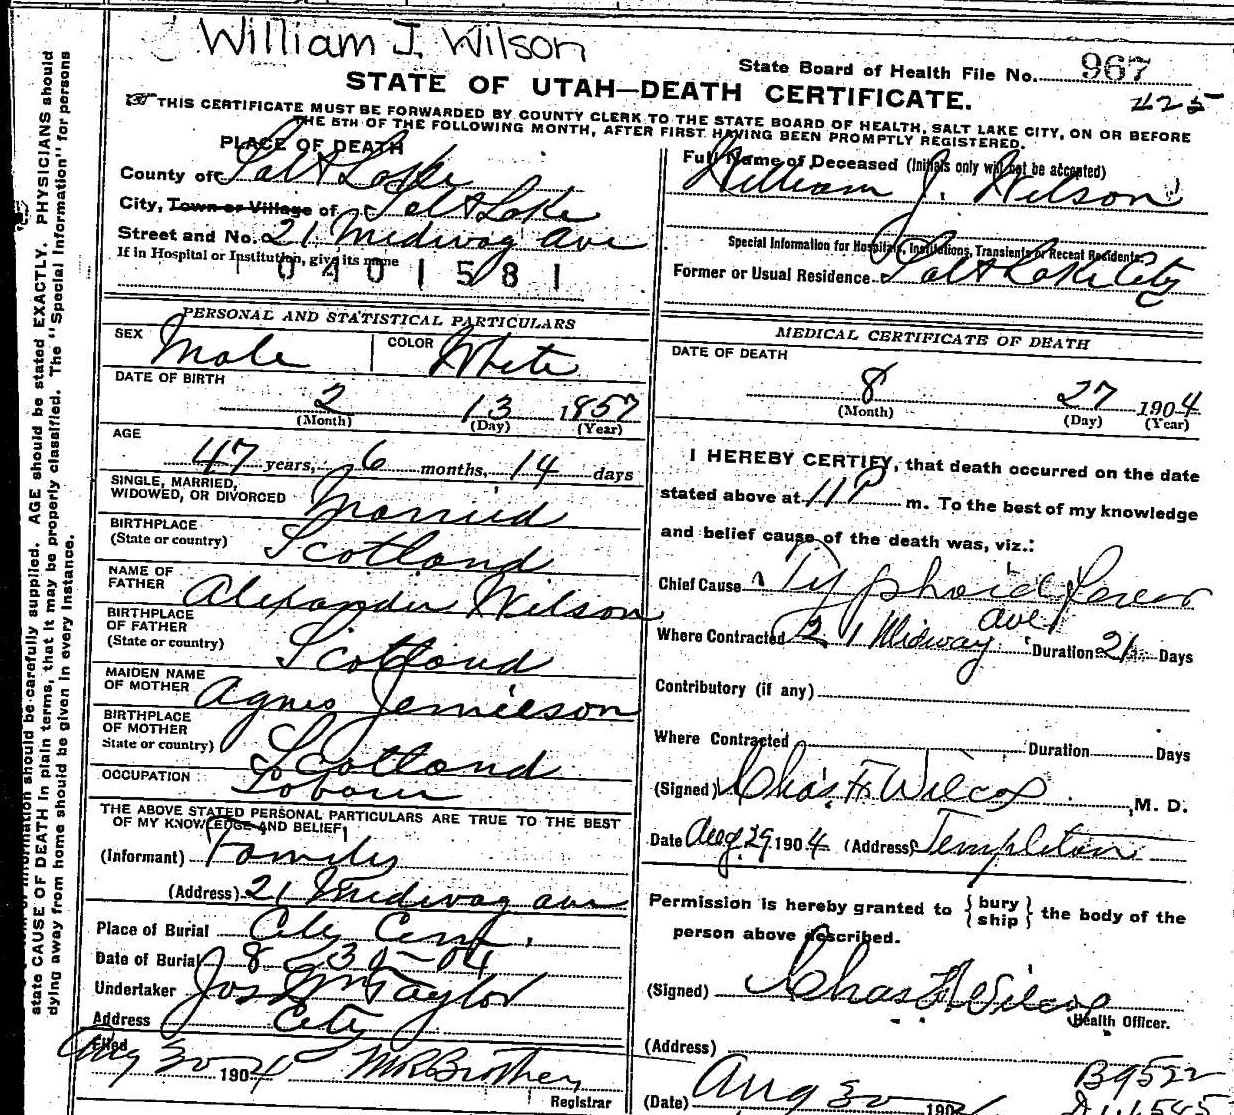 William J. Wilson
State Board of Health File No. 967
425
STATE OF UTAH—DEATH CERTIFICATE.
THIS CERTIFICATE MUST BE FORWARDED BY COUNTY CLERK TO THE STATE BOARD OF HEALTH, SALT LAKE CITY, ON OR BEFORE
THE 5TH OF THE FOLLOWING MONTH, AFTER FIRST HAVING BEEN PROMPTLY REGISTERED.
PLACE OF DEATH
County of Salt Lake
City, Town or Village of Salt Lake
Street and No. 21 Medway Ave
If in Hospital or Institution, give its name
0401581
Full Name of Deceased (Initials only will not be accepted)
William J. Wilson
Special Information for Hospitals, Institutions, Transients or Recent Residents.
Former or Usual Residence Salt Lake City
PERSONAL AND STATISTICAL PARTICULARS
SEX Male COLOR White
DATE OF BIRTH
2 13 1857
(Month) (Day) (Year)
AGE
47 years, 6 months, 14 days
SINGLE, MARRIED,
WIDOWED, OR DIVORCED Married
BIRTHPLACE
(State or country) Scotland
NAME OF
FATHER Alexander Wilson
BIRTHPLACE
OF FATHER
(State or country) Scotland
MAIDEN NAME
OF MOTHER Agnes Jemieson
BIRTHPLACE
OF MOTHER
State or country) Scotland
OCCUPATION Laborer
THE ABOVE STATED PERSONAL PARTICULARS ARE TRUE TO THE BEST
OF MY KNOWLEDGE AND BELIEF
(Informant) Family
(Address) 21 Medway ave
Place of Burial City Cem.
Date of Burial 8-30-04
Undertaker Jos Wm Taylor
Address City
Filed
Aug 30 1904 MRBrothey
Registrar
MEDICAL CERTIFICATE OF DEATH
DATE OF DEATH
8 27 1904
(Month) (Day) (Year)
I HEREBY CERTIFY, that death occurred on the date
stated above at 11 P m. To the best of my knowledge
and belief cause of the death was, viz.:
Chief Cause Typhoid Fever
Where Contracted 21 Midway Ave Duration 21 Days
Contributory (if any)
Where Contracted Duration Days
(Signed) Chas. F. Wilcox, M. D.
Date Aug 29 1904 (Address) Templeton
Permission is hereby granted to {bury
ship} the body of the
person above described.
(Signed) Chas F Wilcox
Health Officer.
(Address)
B9522
(Date) Aug 30 1904
state CAUSE OF DEATH in plain terms, that it may be properly classified. The "Special Information" for persons
dying away from home should be given in every instance.
information should be carefully supplied. AGE should be stated EXACTLY. PHYSICIANS should